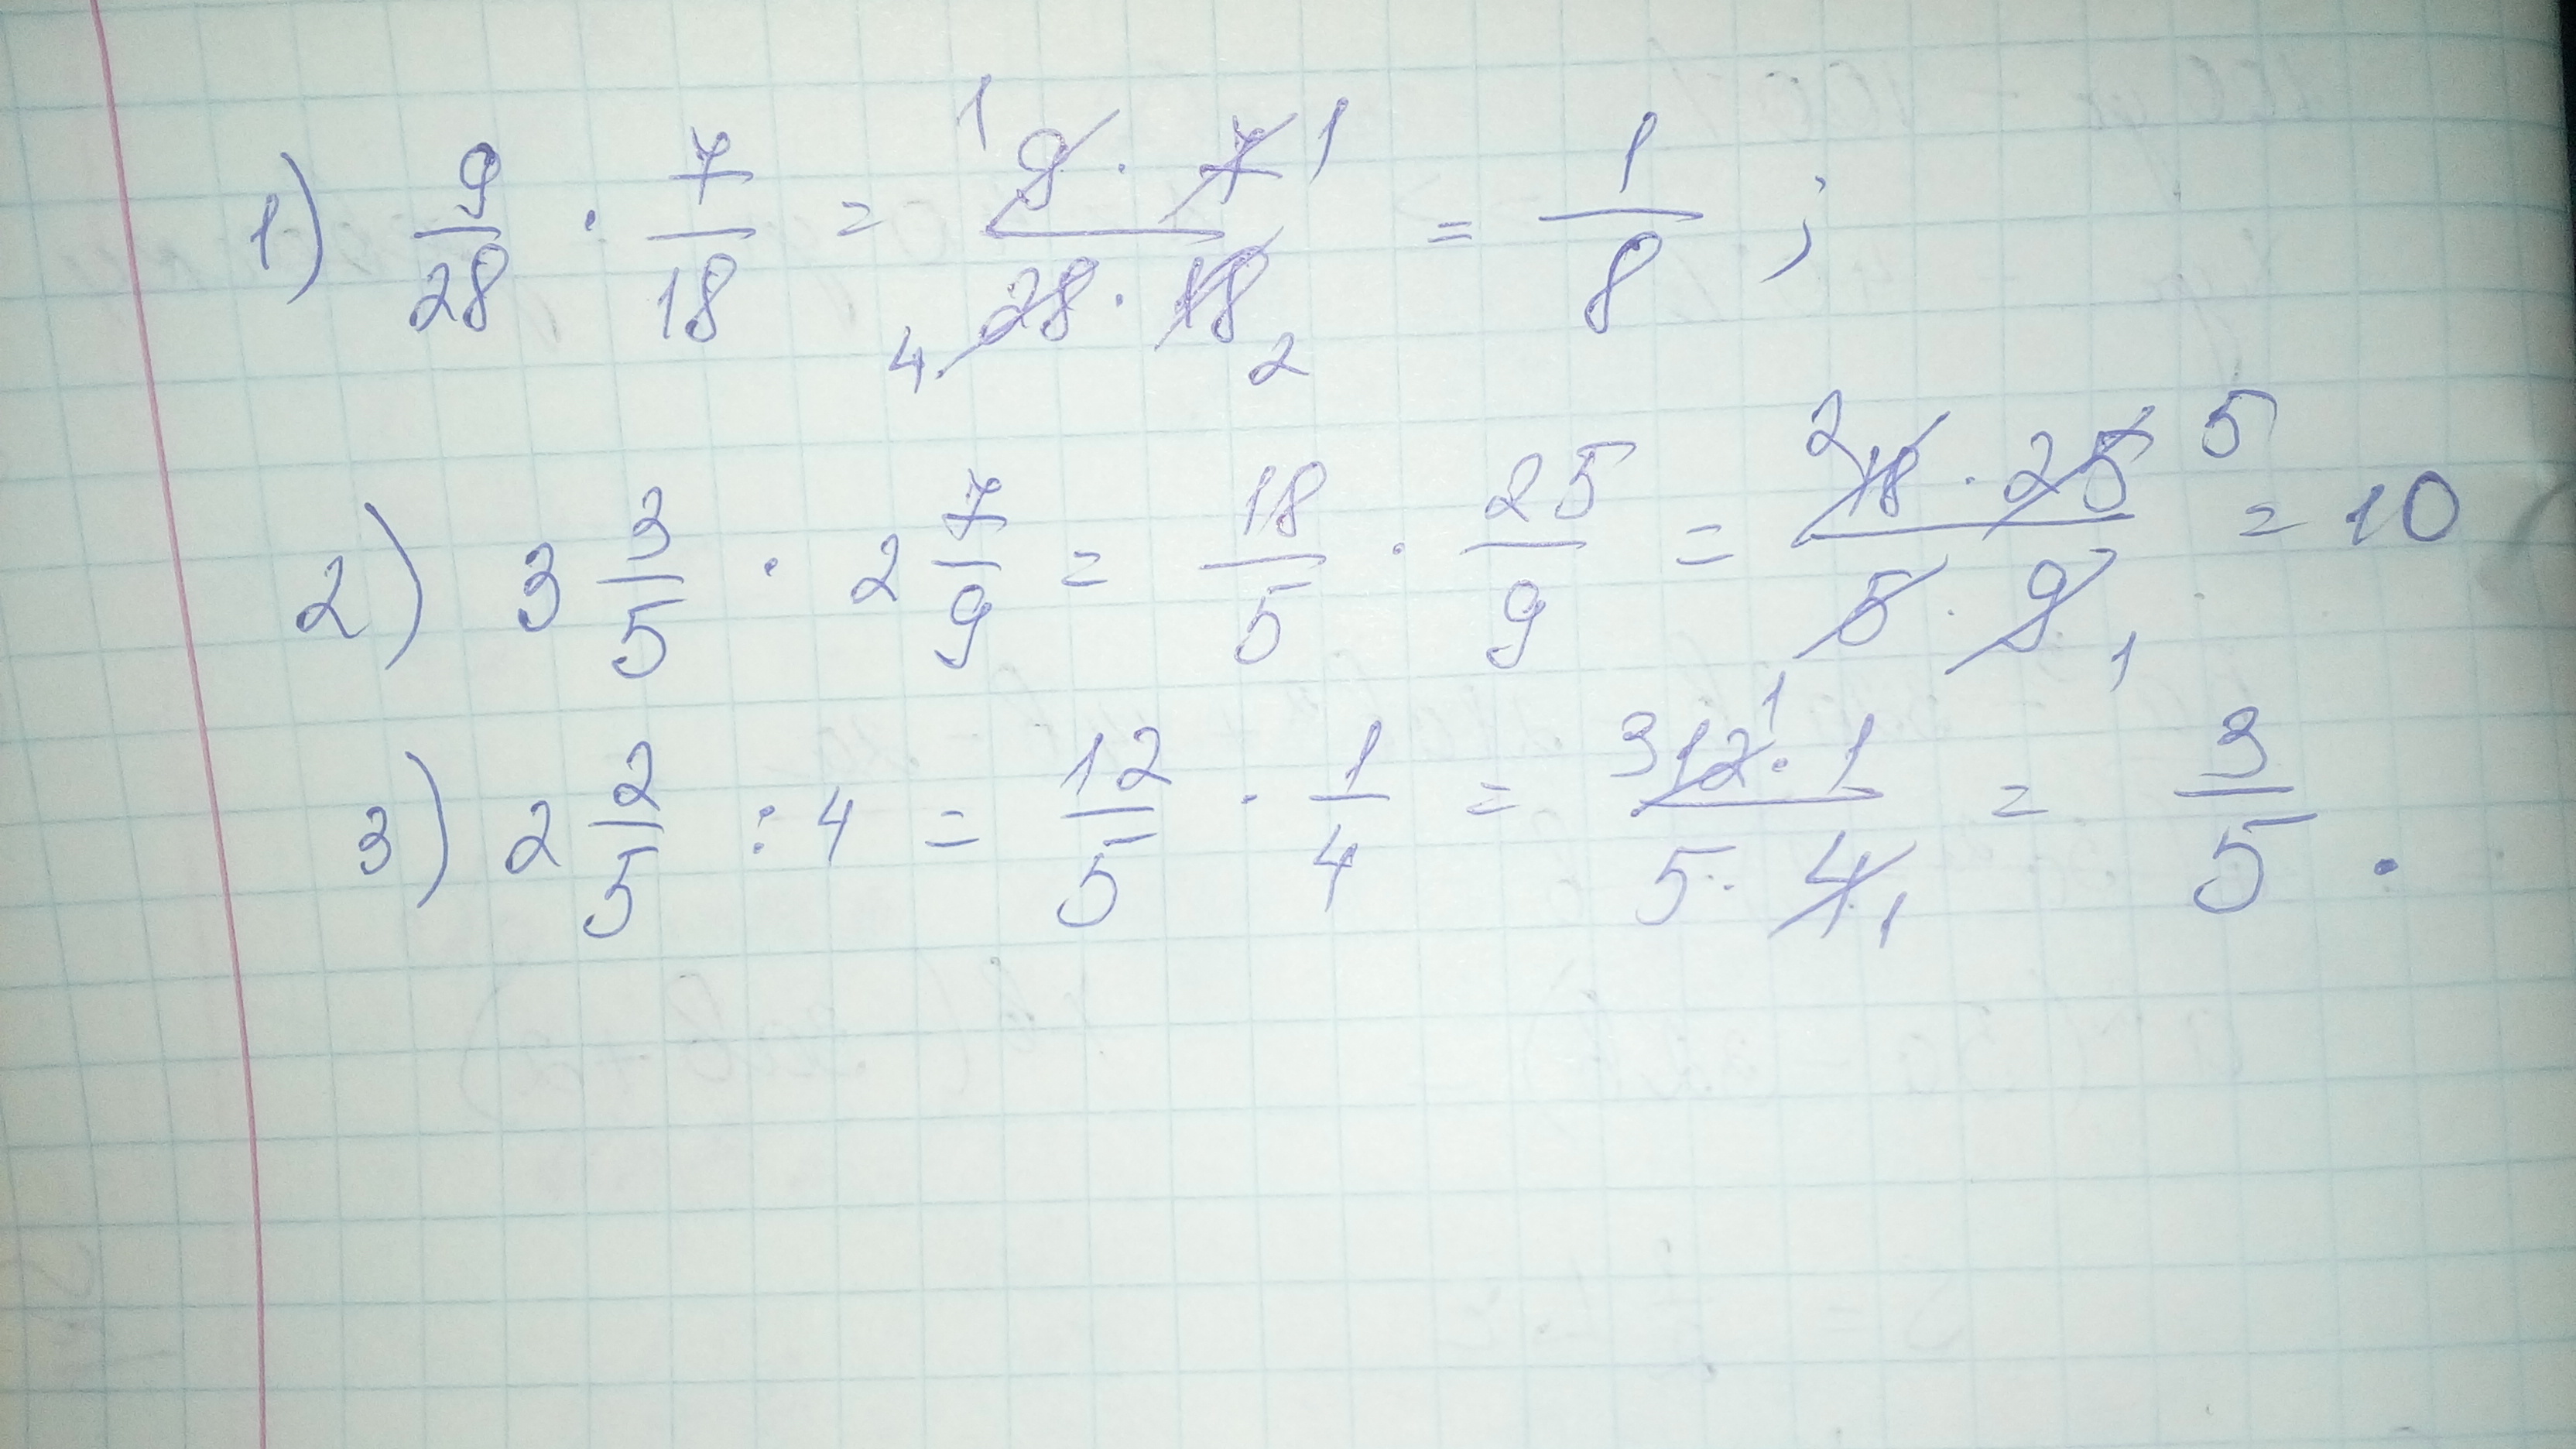 1) 9/28 · 7/18 = 1 9 · 7 1 / 4. 28 · 18 2 = 1/8 ;
2) 3 3/5 · 2 7/9 = 18/5 · 25/9 = 2 18 · 25 5 / 5 · 9 1 = 10
3) 2 2/5 : 4 = 12/5 · 1/4 = 3 12 · 1 1 / 5 · 4 1 = 3/5 .